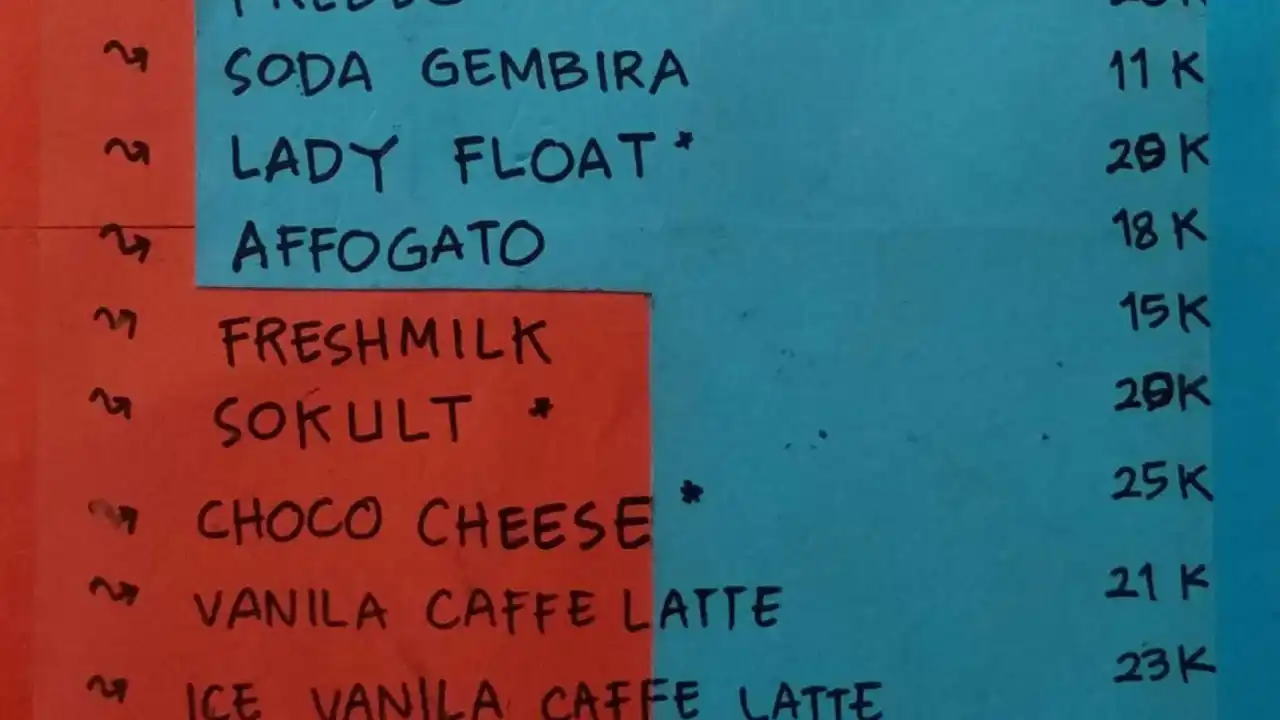 SODA GEMBIRA 11 K
LADY FLOAT * 20 K
AFFOGATO 18 K
FRESHMILK 15 K
SOKULT * 20K
CHOCO CHEESE * 25 K
VANILA CAFFE LATTE 21 K
ICE VANILA CAFFE LATTE 23K